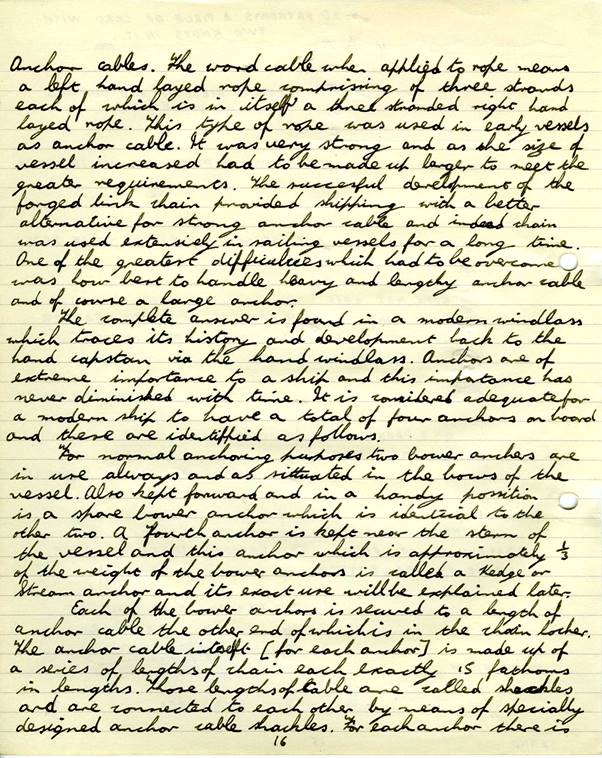 Anchor cables. The word cable when applied to rope means
a left hand layed rope comprising of three strands
each of which is in itself a three stranded right hand
layed rope. This type of rope was used in early vessels
as anchor cable. It was very strong and as the size of
vessel increased had to be made up larger to meet the
greater requirements. The succesful development of the
forged link chain provided shipping with a better
alternative for strong anchor cable and indeed chain
was used extensively in sailing vessels for a long time.
One of the greatest difficulties which had to be overcome
was how best to handle heavy and lengthy anchor cable
and of course a large anchor.
The complete answer is found in a modern windlass
which traces its history and development back to the
hand capstan via the hand windlass. Anchors are of
extreme importance to a ship and this importance has
never diminished with time. It is considered adequate for
a modern ship to have a total of four anchors on board
and these are identified as follows.
For normal anchoring purposes two bower anchers are
in use always and as sittuated in the bows of the
vessel. Also kept forward and in a handy possition
is a spare bower anchor which is identicial to the
other two. A fourth anchor is kept near the stern of
the vessel and this anchor which is approximately 1/3
of the weight of the bower anchors is called a Kedge or
Stream anchor and its exact use will be explained later.
Each of the bower anchors is secured to a length of
anchor cable the other end of which is in the chain locker.
The anchor cable itself [for each anchor] is made up of
a series of lengths of chain each exactly 15 fathoms
in lengths. Those lengths of cable are called shackles
and are connected to each other by means of specially
designed anchor cable shackles. For each anchor there is
16